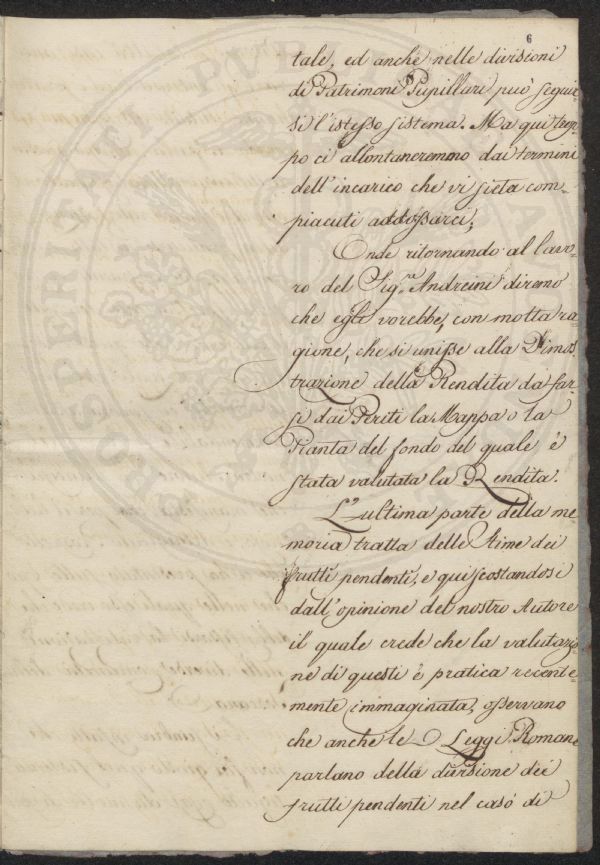 6
tale, ed anche nelle divisioni
di Patrimoni Pupillari può seguir=
si l'istesso sistema. Ma qui trop=
po ci allontaneremmo dai termini
dell'incarico che vi siete com=
piaciuti addossarci;
Onde ritornando al lavo=
ro del Sig.r Andreini diremo
che egli vorebbe, con molta ra=
gione, che si unisse alla Dimos=
trazione della Rendita da far=
si dai Periti la Mappa o la
Pianta del fondo del quale è
stata valutata la Rendita.
L'ultima parte della me=
moria tratta delle Stime dei
frutti pendenti, e quì scostandosi
dall'opinione del nostro Autore
il quale crede che la valutazio=
ne di questi è pratica recente=
mente immaginata, osservano
che anche le Leggi Romane
parlano della divisione dei
frutti pendenti nel caso di
PROSPERITATI PUBLICAE